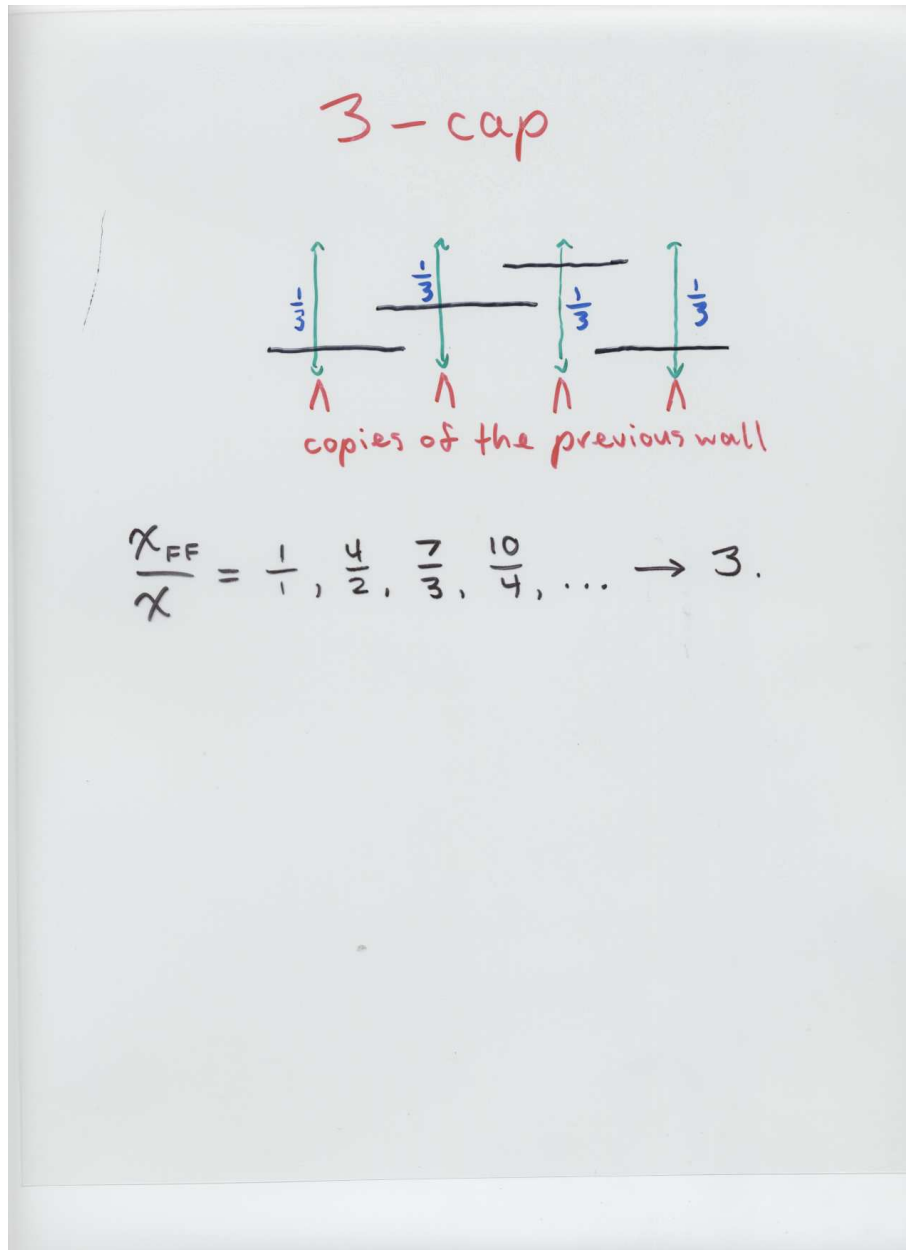 3-cap
1/3 1/3 1/3 1/3
Λ Λ Λ Λ
copies of the previous wall
χ_FF/χ = 1/1, 4/2, 7/3, 10/4, ... → 3.